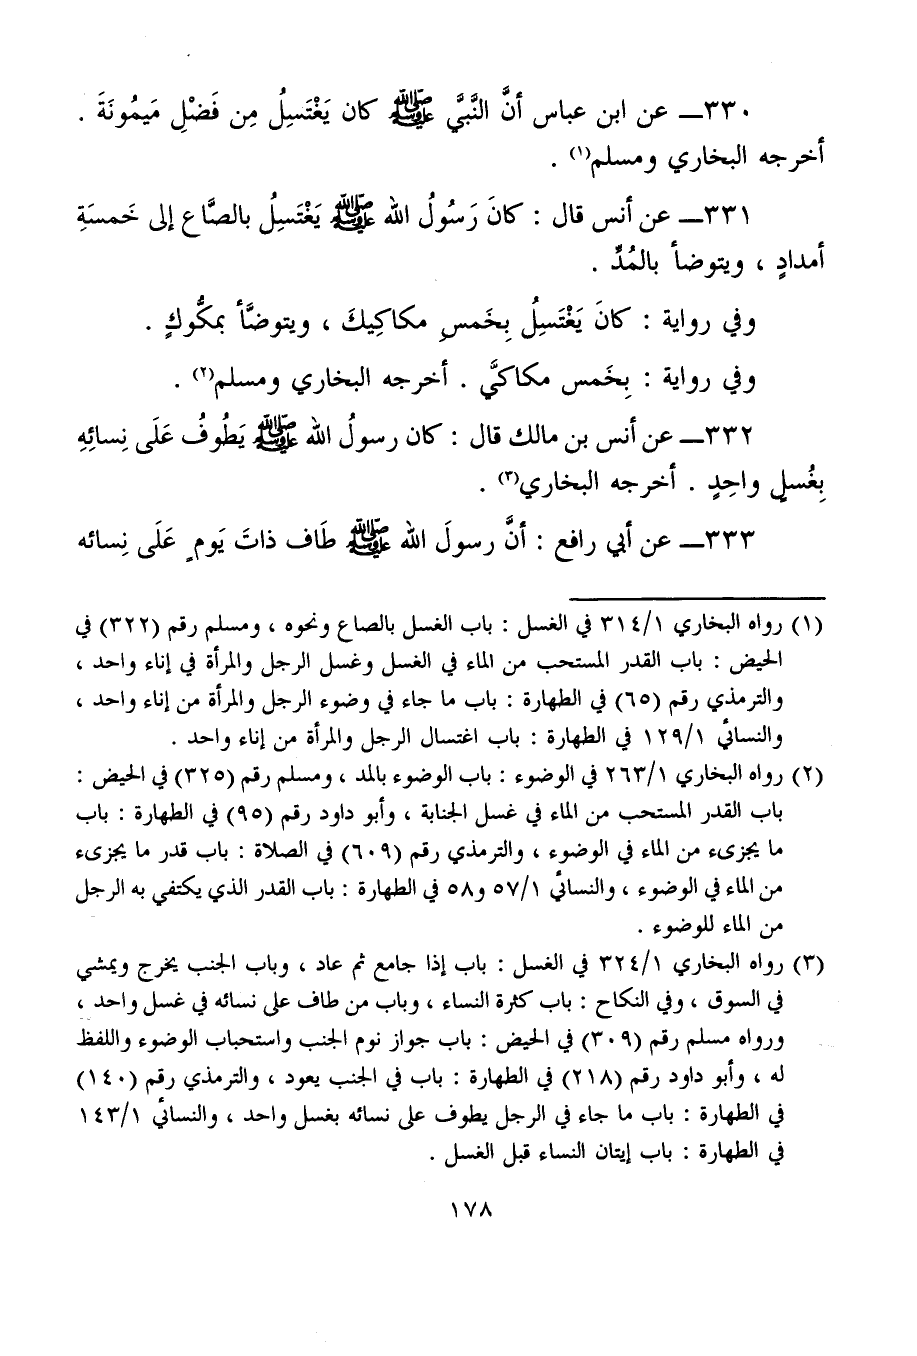 ٣٣٠ــ عن ابن عباس أنَّ النَّبيَّ ﷺ كان يَغْتَسِلُ مِن فَضْلِ مَيمُونَةَ .
أخرجه البخاري ومسلم(١) .
٣٣١ــ عن أنس قال : كانَ رَسُولُ الله ﷺ يَغْتَسِلُ بالصَّاع إلى خَمسَةِ
أمدادٍ ، ويتوضأ بالمُدِّ .
وفي رواية : كانَ يَغْتَسِلُ بِخَمسِ مكاكِيكَ ، ويتوضَّأ بمكُّوكٍ .
وفي رواية : بِخَمس مكاكيَّ . أخرجه البخاري ومسلم(٢) .
٣٣٢ــ عن أنس بن مالك قال : كان رسولُ الله ﷺ يَطُوفُ عَلَى نِسائِهِ
بِغُسلٍ واحِدٍ . أخرجه البخاري(٣) .
٣٣٣ــ عن أبي رافع : أنَّ رسولَ الله ﷺ طَاف ذاتَ يَومٍ عَلَى نِسائه
(١) رواه البخاري ٣١٤/١ في الغسل : باب الغسل بالصاع ونحوه ، ومسلم رقم (٣٢٢) في
الحيض : باب القدر المستحب من الماء في الغسل وغسل الرجل والمرأة في إناء واحد ،
والترمذي رقم (٦٥) في الطهارة : باب ما جاء في وضوء الرجل والمرأة من إناء واحد ،
والنسائي ١٢٩/١ في الطهارة : باب اغتسال الرجل والمرأة من إناء واحد .
(٢) رواه البخاري ٢٦٣/١ في الوضوء : باب الوضوء بالمد ، ومسلم رقم (٣٢٥) في الحيض :
باب القدر المستحب من الماء في غسل الجنابة ، وأبو داود رقم (٩٥) في الطهارة : باب
ما يجزىء من الماء في الوضوء ، والترمذي رقم (٦٠٩) في الصلاة : باب قدر ما يجزىء
من الماء في الوضوء ، والنسائي ٥٧/١ و٥٨ في الطهارة : باب القدر الذي يكتفي به الرجل
من الماء للوضوء .
(٣) رواه البخاري ٣٢٤/١ في الغسل : باب إذا جامع ثم عاد ، وباب الجنب يخرج ويمشي
في السوق ، وفي النكاح : باب كثرة النساء ، وباب من طاف على نسائه في غسل واحد ،
ورواه مسلم رقم (٣٠٩) في الحيض : باب جواز نوم الجنب واستحباب الوضوء واللفظ
له ، وأبو داود رقم (٢١٨) في الطهارة : باب في الجنب يعود ، والترمذي رقم (١٤٠)
في الطهارة : باب ما جاء في الرجل يطوف على نسائه بغسل واحد ، والنسائي ١٤٣/١
في الطهارة : باب إيتان النساء قبل الغسل .
١٧٨